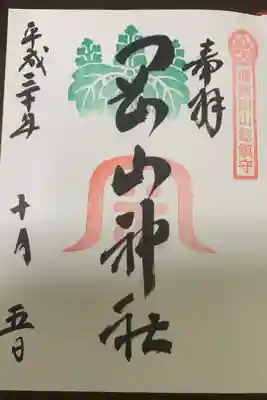 奉拝
岡山神社
平成三十年
十月
五日